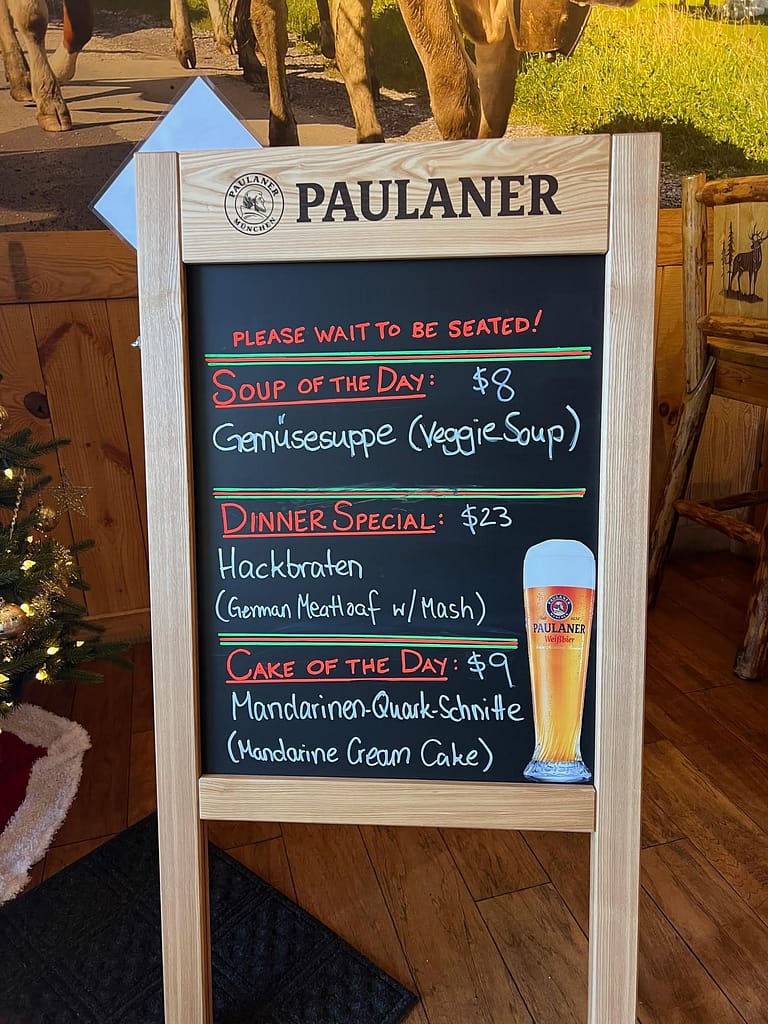 PAULANER
MÜNCHEN
PAULANER
PLEASE WAIT TO BE SEATED!
SOUP OF THE DAY: $8
Gemüsesuppe (Veggie Soup)
DINNER SPECIAL: $23
Hackbraten
(German Meatloaf w/Mash)
CAKE OF THE DAY: $9
Mandarinen-Quark-Schnitte
(Mandarine Cream Cake)
PAULANER
Weißbier